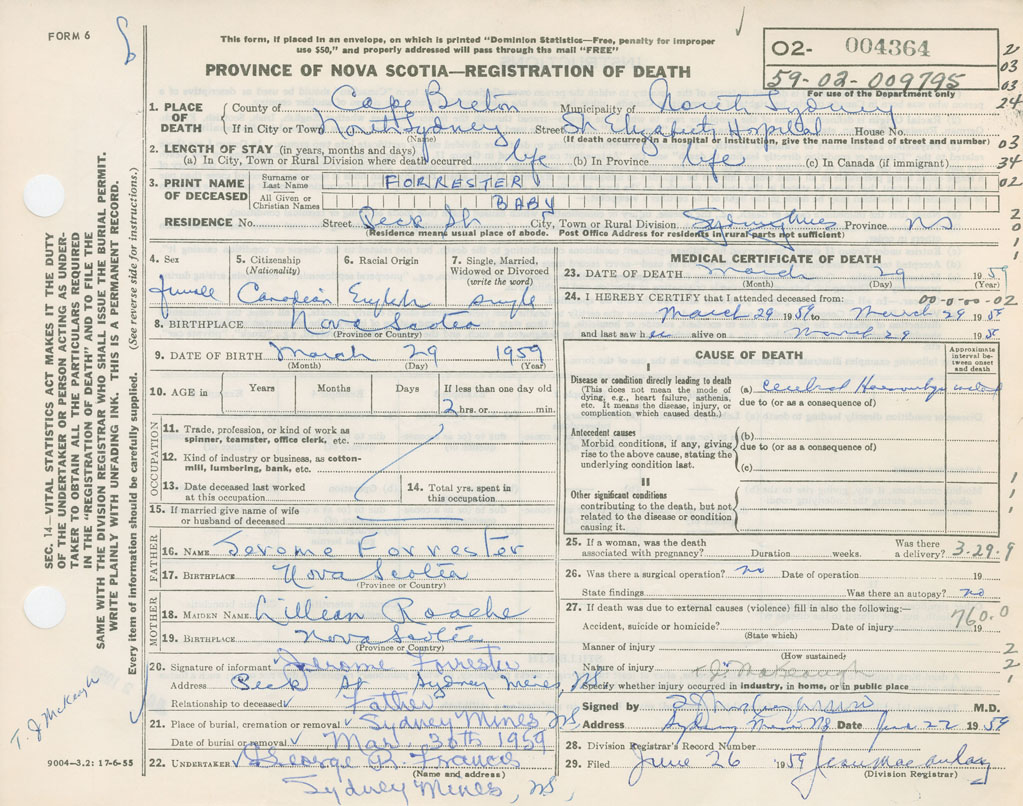 FORM 6
This form, if placed in an envelope, on which is printed "Dominion Statistics—Free, penalty for improper
use $50," and properly addressed will pass through the mail "FREE"
02- 004364
59-02-009795
For use of the Department only
PROVINCE OF NOVA SCOTIA—REGISTRATION OF DEATH
2
03
03
24
03
34
02
2
0
1
1
1. PLACE OF DEATH
County of Cape Breton Municipality of North Sydney
If in City or Town North Sydney Street St Elizabeth Hospital House No.
(Name) (If death occurred in a hospital or institution, give the name instead of street and number)
2. LENGTH OF STAY (in years, months and days)
(a) In City, Town or Rural Division where death occurred life (b) In Province life (c) In Canada (if immigrant)
3. PRINT NAME OF DECEASED
Surname or Last Name FORRESTER
All Given or Christian Names BABY
RESIDENCE No. Street Peck St City, Town or Rural Division Sydney Mines Province NS
(Residence means usual place of abode. Post Office Address for residents in rural parts not sufficient)
4. Sex
female
5. Citizenship
(Nationality)
Canadian
6. Racial Origin
English
7. Single, Married,
Widowed or Divorced
(write the word)
single
8. BIRTHPLACE Nova Scotia
(Province or Country)
9. DATE OF BIRTH March 29 1959
(Month) (Day) (Year)
10. AGE in
Years Months Days If less than one day old
2 hrs. or min.
OCCUPATION
11. Trade, profession, or kind of work as
spinner, teamster, office clerk, etc.
12. Kind of industry or business, as cotton-
mill, lumbering, bank, etc.
13. Date deceased last worked
at this occupation
14. Total yrs. spent in
this occupation
15. If married give name of wife
or husband of deceased
FATHER
16. NAME Jerome Forrester
17. BIRTHPLACE Nova Scotia
(Province or Country)
MOTHER
18. MAIDEN NAME Lillian Roache
19. BIRTHPLACE Nova Scotia
(Province or Country)
20. Signature of informant Jerome Forrester
Address Peck St Sydney Mines, NS
Relationship to deceased Father
21. Place of burial, cremation or removal Sydney Mines NS
Date of burial or removal Mar. 30th 1959
22. UNDERTAKER George R. Francis
(Name and address)
Sydney Mines, NS,
MEDICAL CERTIFICATE OF DEATH
23. DATE OF DEATH March 29 1959
(Month) (Day) (Year)
24. I HEREBY CERTIFY that I attended deceased from: 00-0-00-02
March 29 19 to March 29 19
and last saw h alive on March 29 19
CAUSE OF DEATH
Approximate
interval be-
tween onset
and death
I
Disease or condition directly leading to death
(This does not mean the mode of
dying, e.g., heart failure, asthenia,
etc. It means the disease, injury, or
complication which caused death.)
(a) Cerebral Haemorrhage
due to (or as a consequence of)
Antecedent causes
Morbid conditions, if any, giving
rise to the above cause, stating the
underlying condition last.
(b)
due to (or as a consequence of)
(c)
II
Other significant conditions
contributing to the death, but not
related to the disease or condition
causing it.
1
1
1
25. If a woman, was the death
associated with pregnancy? Duration weeks. Was there
a delivery? 3-29-9
26. Was there a surgical operation? no Date of operation 19
State findings Was there an autopsy? no
27. If death was due to external causes (violence) fill in also the following:—
760.0
Accident, suicide or homicide? Date of injury 19
(State which)
Manner of injury 2
(How sustained)
Nature of injury T. J. McKeough 2
Specify whether injury occurred in industry, in home, or in public place 1
Signed by M.D.
Address Sydney Mines NS Date June 22 1959
28. Division Registrar's Record Number
29. Filed June 26 1959
(Division Registrar)
SEC. 14—VITAL STATISTICS ACT MAKES IT THE DUTY
OF THE UNDERTAKER OR PERSON ACTING AS UNDER-
TAKER TO OBTAIN ALL THE PARTICULARS REQUIRED
IN THE "REGISTRATION OF DEATH" AND TO FILE THE
SAME WITH THE DIVISION REGISTRAR WHO SHALL ISSUE THE BURIAL PERMIT.
WRITE PLAINLY WITH UNFADING INK. THIS IS A PERMANENT RECORD.
Every item of information should be carefully supplied. (See reverse side for instructions.)
T. J McKeough
9004-3.2: 17-6-55